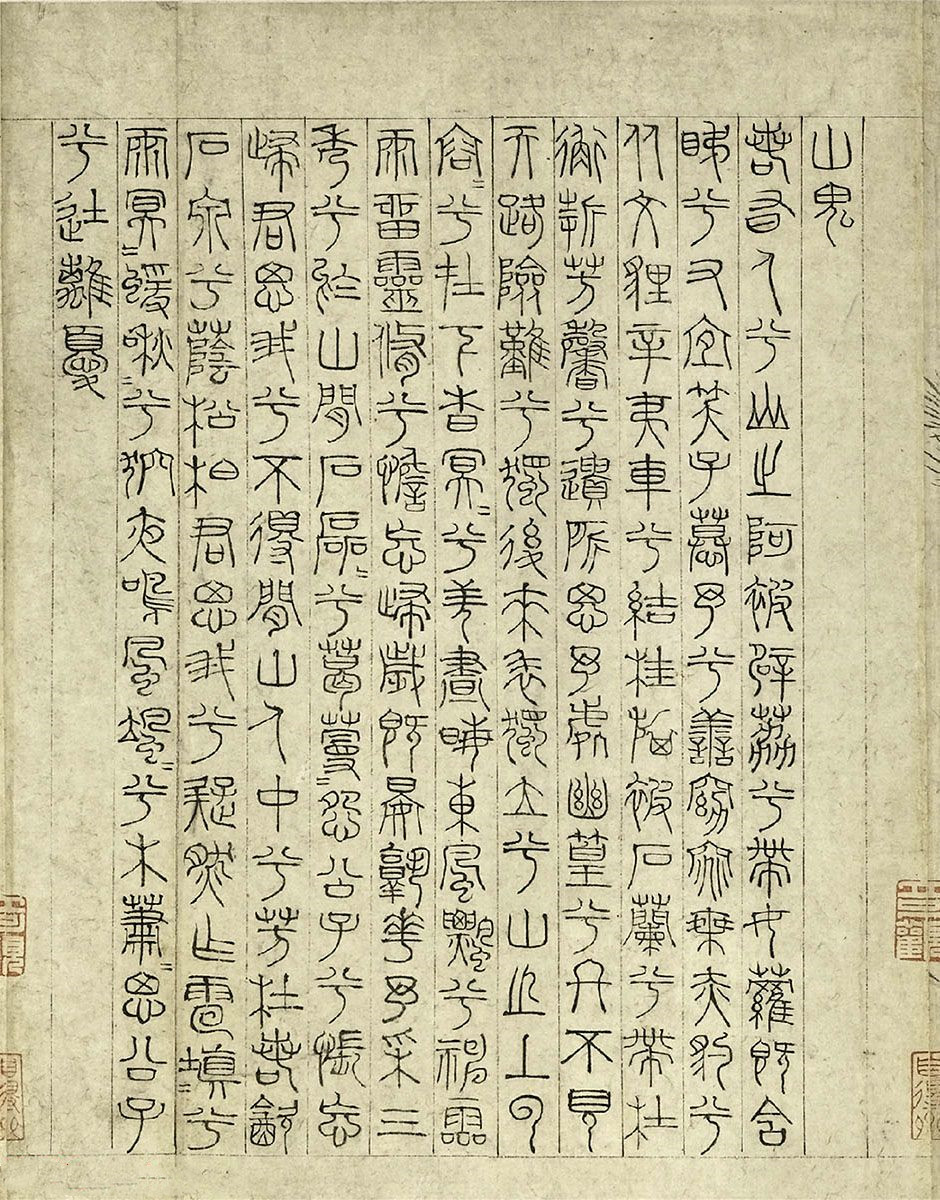 山鬼
若有人兮山之阿被薜荔兮帶女蘿既含
睇兮又宜笑子慕予兮善窈窕乘赤豹兮
从文貍辛夷車兮結桂旗被石蘭兮帶杜
衡折芳馨兮遺所思予處幽篁兮終不見
天路險難兮獨後來表獨立兮山之上云
容=兮在下杳冥=兮羌晝晦東風飄兮神靈
雨留靈脩兮憺忘歸歲既晏孰華予采三
秀兮於山間石磊=兮葛蔓=怨公子兮悵忘
歸君思我兮不得閒山人中兮芳杜若飲
石泉兮蔭松柏君思我兮疑然作雷填=兮
雨冥=猨啾=兮狖夜鳴風颯=兮木蕭=思公子
兮徒離憂